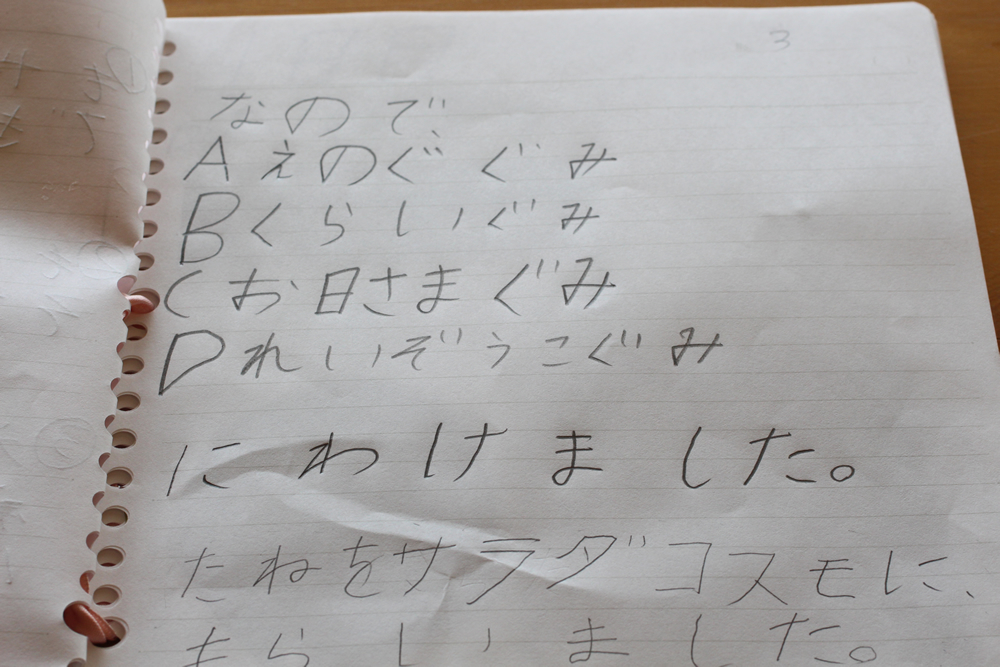 3
なので、
Aえのぐぐみ
Bくらいぐみ
Cお日さまぐみ
Dれいぞうこぐみ
にわけました。
たねをサラダコスモに、
もらいました。